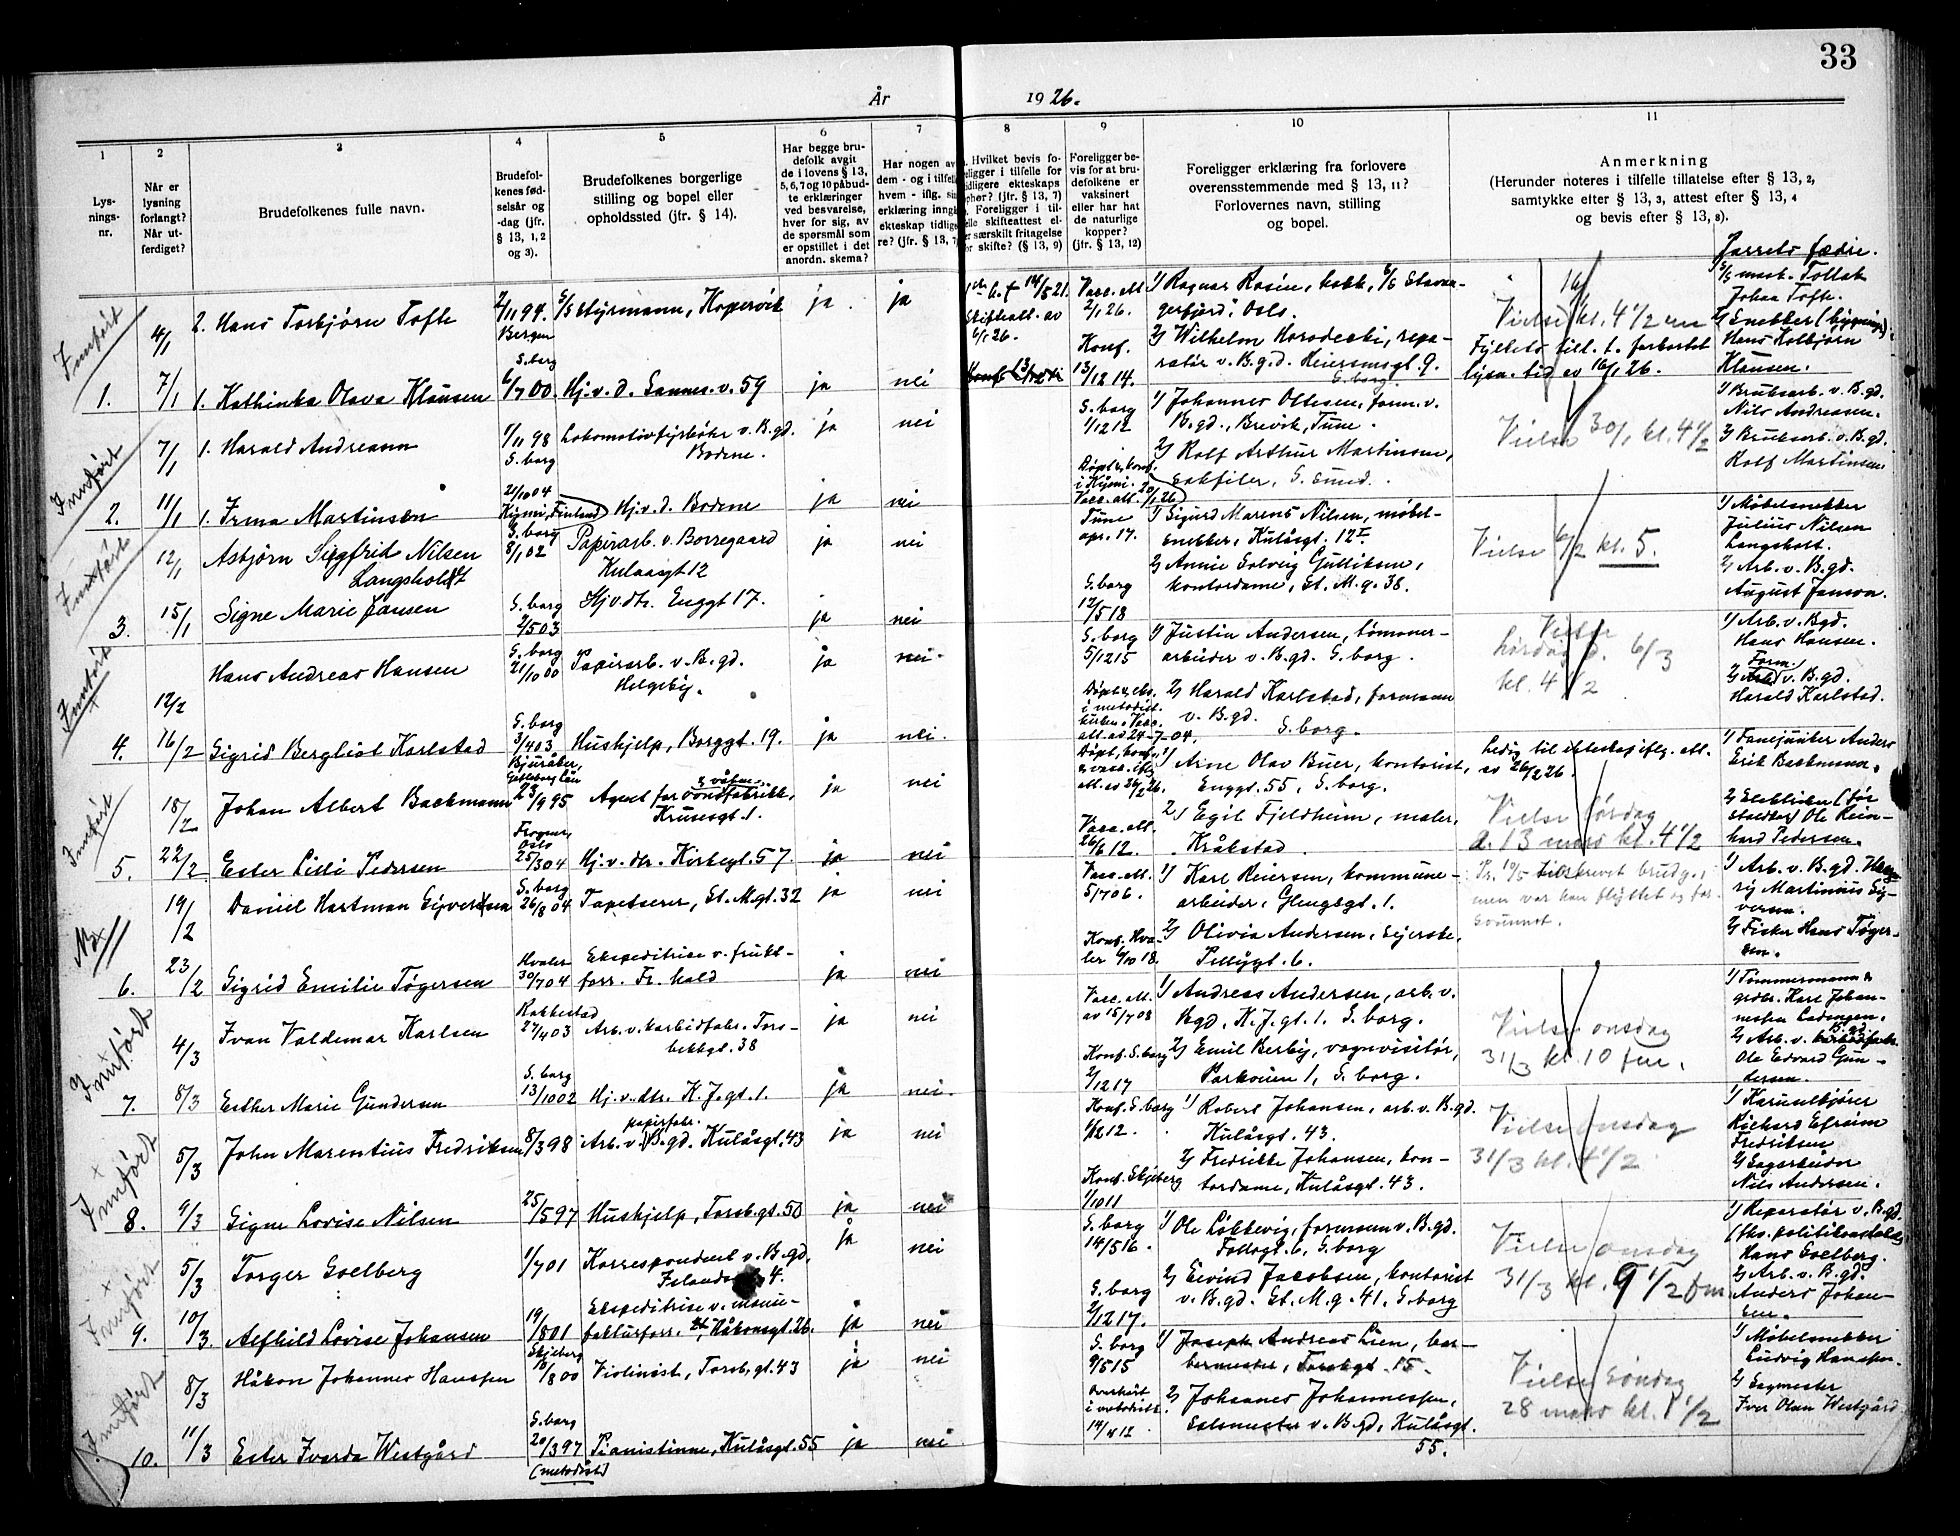 33
År 1926.
1 2 3 4 5 6 7 8 9 10 11
Lys-
nings-
nr.
Når er
lysning
forlangt?
Når ut-
ferdiget?
Brudefolkenes fulle navn.
Brudefol-
kenes fød-
selsår og
-dag (jfr.
§ 13, 1, 2
og 3).
Brudefolkenes borgerlige
stilling og bopel eller
opholdssted (jfr. § 14).
Har begge bru-
defolk avgit
de i lovens § 13,
5, 6, 7 og 10 påbud-
te erklæringer
ved besvarelse,
hver for sig, av
de spørsmål som
er opstillet i det
anordn. skema?
Har nogen av
dem - og i tilfelle
hvem - iflg. sin
erklæring inngått
ekteskap tidlige-
re? (jfr. § 13, 7)
Hvilket bevis fo-
religger i tilfelle for
tidligere ekteskaps
ophør? (jfr. § 13, 7)
Foreligger i til-
felle skifteattest el-
ler særskilt fritagelse
for skifte? (§ 13, 9)
Foreligger be-
vis for at bru-
defolkene er
vaksinert
eller har hat
de naturlige
kopper?
(jfr. § 13, 12)
Foreligger erklæring fra forlovere
overensstemmende med § 13, 11?
Forlovernes navn, stilling
og bopel.
Anmerkning
(Herunder noteres i tilfelle tillatelse efter § 13, 2,
samtykke efter § 13, 3, attest efter § 13, 4
og bevis efter § 13, 8).
Innført
4/1 2. Hans Torbjørn Tofte 2/11 94. Bergen Styrmann, Kopervik ja. ja
Skifteatt. av 6/1 26. Vacc. att. 2/1 26.
1) Ragnar Rosén, kokk, S/S Stavan-
gerfjord, Oslo.
2) Wilhelm Horodecki, repa-
ratør v. B.g.d. Reiersensgt 9.
S.borg.
Vielse 16/1 kl. 4 1/2 em
Fylkets till. t. forkortet
lysn. tid av 16/1 26.
Tollak
Johan Tofte.
2) Snekker
Hans Kolbjørn
Klausen.
1. 7/1 1. Kathinka Olava Klausen S.borg 6/7 00. Hj. v. d. Sannes. v. 59 ja nei Konf. 13/12 14.
Innført
7/1 1. Harald Andreassen 1/11 98 S.borg Lokomotivfyrbøter v. B.gd.
Bodene. ja nei S.borg 1/12 12
1) Johannes Ottesen, form. v.
B.gd., Brevik, Tune.
2) Rolf Arthur Martinsen,
sakfiler, G. Sund.
Vielse 30/1 kl. 4 1/2
1) Bruksarb. v. B.gd.
Nils Andreasen.
2) Bruksarb. v. B.gd.
Rolf Martinsen
2. 11/1 1. Irma Martinsen 21/10 04 Kymi, Finland Hj. v. d. Bodene ja nei
Døpt & konf. i Kymi. Vacc. att. 20/1 26
Innført
12/1 Asbjørn Siggfrid Nilsen
Langsholdt S.borg 8/1 02 Papirarb. v. Borregaard
Kulaasgt 12 ja nei Tune apr. 17.
1) Sigurd Marens Nilsen, møbel-
snekker, Kulåsgt. 12 I.
2) Annie Solveig Gulliksen,
kontordame, St. M. g. 38.
Vielse 6/2 kl. 5.
1) Møbelsnekker
Julius Nilsen
Langsholt.
2) Arb. v. B.gd.
August Janson.
3. 15/1 Signe Marie Jansen S.borg 2/5 03 Hj. v. dtr. Enggt 17. ja nei S.borg 12/5 18
Innført
12/2 Hans Andreas Hansen S.borg 21/10 00 Papirarb. v. B.gd.
Helgeby. ja nei. S.borg 5/12 15
1) Justin Andersen, tømmer-
arbeider v. B.gd. S.borg.
2) Harald Karlstad, formann
v. B.gd.
S.borg.
Vielse
lørdag d. 6/3
kl. 4 1/2
1) Arb. v. B.gd.
Hans Hansen.
2) Form. v. B.gd.
Harald Karlstad.
4. 16/2 Sigrid Bergliot Karlstad S.borg 3/4 03 Hushjelp, Borggt. 19. ja nei.
i metodist-
kirken. Vacc.
att. av 24-7-04.
Innført
18/2 Johan Albert Backmann 23/9 95 Agent for
Krusesgt. 1. ja nei
1) Arne Olav Buer, kontorist,
Enggt. 55, S.borg.
2) Egil Fjeldheim, maler,
Kråkstad.
Ledig til ekteskap iflg. att.
av 26/2 26.
Vielse lørdag
d. 13 mars kl. 4 1/2
1) Fanejunker Anders
Erik Backmann.
2) Elektriker
Ole Rein-
hard Pedersen.
5. 22/2 Ester Lilli Pedersen Frogner, Oslo 25/3 04 Hj. v. dtr. Kirkegt. 57. ja nei Vacc. att. 26/6 12.
19/2 Daniel Hartman Syversen S.borg 26/8 04 Tapetserer, St. M. gt. 32 ja nei Vacc. att. 5/7 06.
1) Karl Reiersen, kommune-
arbeider, Glengsgt. 1.
2) Olivia Andersen,
Pellygt. 6.
Pr. 10/5 tilskrevet brudg.,
men var han flyttet og for-
svunnet.
1) Arb. v. B.gd.
Martinius Sy-
versen.
2) Fisker Hans Tøger-
sen.
6. 23/2 Sigrid Emilie Tøgersen Hvaler 30/7 04 Ekspeditrise v. frukt-
forr. Fr. hald ja nei Konf. Hva-
ler 6/10 18.
Innført
4/3 Ivan Valdemar Karlsen Rakkestad 27/4 03 Arb. v. karbidfabr. Tors-
bekkgt. 38 ja nei Vacc. att. av 15/7 08
1) Andreas Andersen, arb. v.
B.gd., K. J. gt. 1. S.borg.
2) Emil Berby, vognvisitør,
Parkveien 1, S.borg.
Vielse onsdag
31/3 kl. 10 fm.
1) Tømmermann &
grdbr. Karl Johan-
nessen Ladengen.
2) Arb. v. B.gd.
Ole Edvard Gun-
dersen.
7. 8/3 Esther Marie Gundersen S.borg 13/10 02 Hj. v. dtr. K. J. gt. 1. ja nei. Konf. S.borg 2/12 17
Innført
5/3 John Marentius Fredriksen 8/3 98 Arb. v. papirfabr. B.gd. Kulåsgt. 43 ja nei Konf. S.borg 1/12 12
1) Robert Johansen, arb. v. B.gd.
Kulåsgt. 43.
2) Fredrikke Johansen, kon-
tordame, Kulåsgt. 43.
Vielse onsdag
31/3 kl. 4 1/2.
1) Karuselkjører
Rickard Efraim
Fredriksen
2) Sagarbeider
Nils Andersen.
8. 9/3 Signe Lovise Nilsen 25/5 97 Hushjelp, Torsb. gt. 50 ja nei Konf. Skjeberg 1/10 11
Innført
5/3 Torger Solberg 1/7 01 Korrespondent v. B.gd,
4. ja nei S.borg 14/5 16.
1) Ole Løkkevig, formann v. B.gd.
Tollogt. 6, S.borg
2) Eivind Jacobsen, kontorist
v. B.gd. St. M. g. 41, S.borg
Vielse onsdag
31/3 kl. 9 1/2 fm
1) Reparatør v. B.gd.
Hans Soelberg.
2) Arb. v. B.gd.
Anders Johan-
sen.
9. 10/3. Alfhild Lovise Johansen 19/8 01 Ekspeditrise v. manu-
fakturforr. Håkonsgt. 26. ja nei S.borg 2/12 17.
Innført
8/3 Håkon Johannes Hanssen Skjeberg 18/8 00 Violinist, Torsb. gt. 43 ja nei S.borg 9/5 15
1) Joseph Andreas Lien, bar-
bermester, Torsbgt. 15.
2) Johannes Johannessen,
Salsmester v. B.gd, Kulåsgt.
55.
Vielse Søndag
28 mars kl. 1 1/2
1) Møbelsnekker
Ludvig Hanssen.
2) Sagmester
Iver Olau Westgård
10. 11/3 Ester Iverda Westgård S.borg 20/3 97 Pianistinne, Kulåsgt. 55 ja nei.
(metodist)